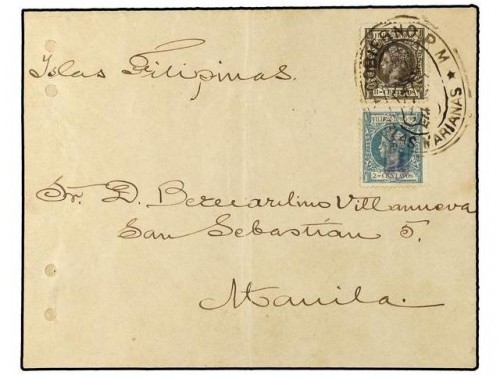 Islas Filipinas.
GOBIERNO P.M ★
MARIANAS
FILIPINAS
2 CENTAVOS
Sr. D. Bernardino Villanueva
San Sebastián 5.
Manila.